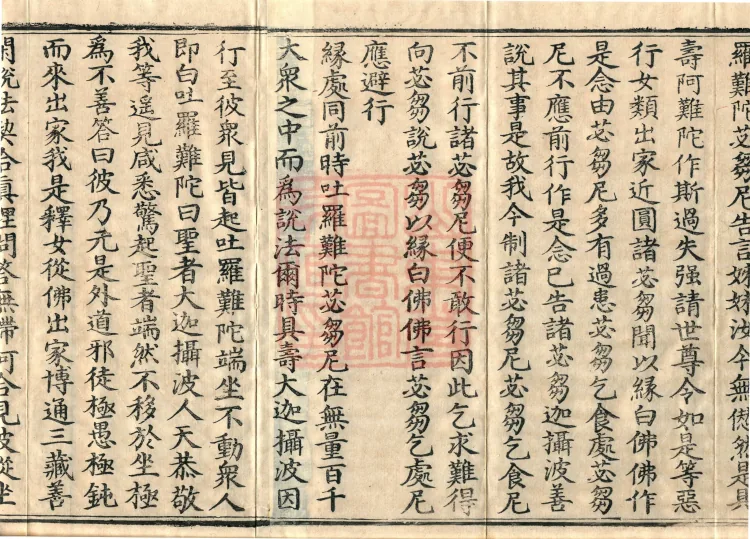 羅難陀苾芻尼告言姊妹汝今無愆然是具
壽阿難陀作斯過失强請世尊令如是等惡
行女類出家近圓諸苾芻聞以緣白佛佛作
是念由苾芻尼多有過患苾芻乞食處苾芻
尼不應前行作是念已告諸苾芻迦攝波善
說其事是故我今制諸苾芻尼苾芻乞食尼
不前行諸苾芻尼便不敢行因此乞求難得
向苾芻說苾芻以緣白佛佛言苾芻乞處尼
應避行
緣處同前時吐羅難陀苾芻尼在無量百千
大衆之中而爲說法爾時具壽大迦攝波因
行至彼衆見皆起吐羅難陀端坐不動衆人
即白吐羅難陀曰聖者大迦攝波人天恭敬
我等遥見咸悉驚起聖者端然不移於坐極
爲不善荅曰彼乃元是外道邪徒極愚極鈍
而來出家我是釋女從佛出家博通三藏善
閑說法契合真理問荅無滯何合見彼從坐